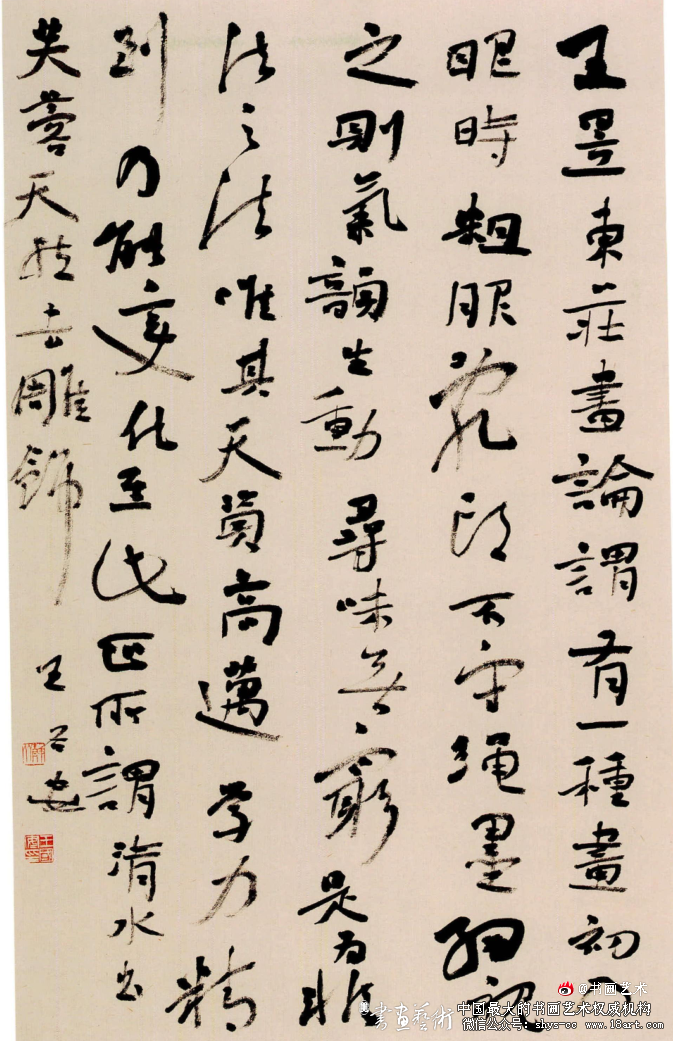 王昱東莊畫論謂有一種畫初入
眼時粗服亂頭不守绳墨細視
之則氣韻生動尋味無窮是為非
法之法唯其天資高邁学力精
到乃能变化至此正所謂清水出
芙蓉天然去雕飾
@书画艺术
書畫藝術
中国最大的书画艺术权威机构
微信公众号: shys-cc www.18art.com